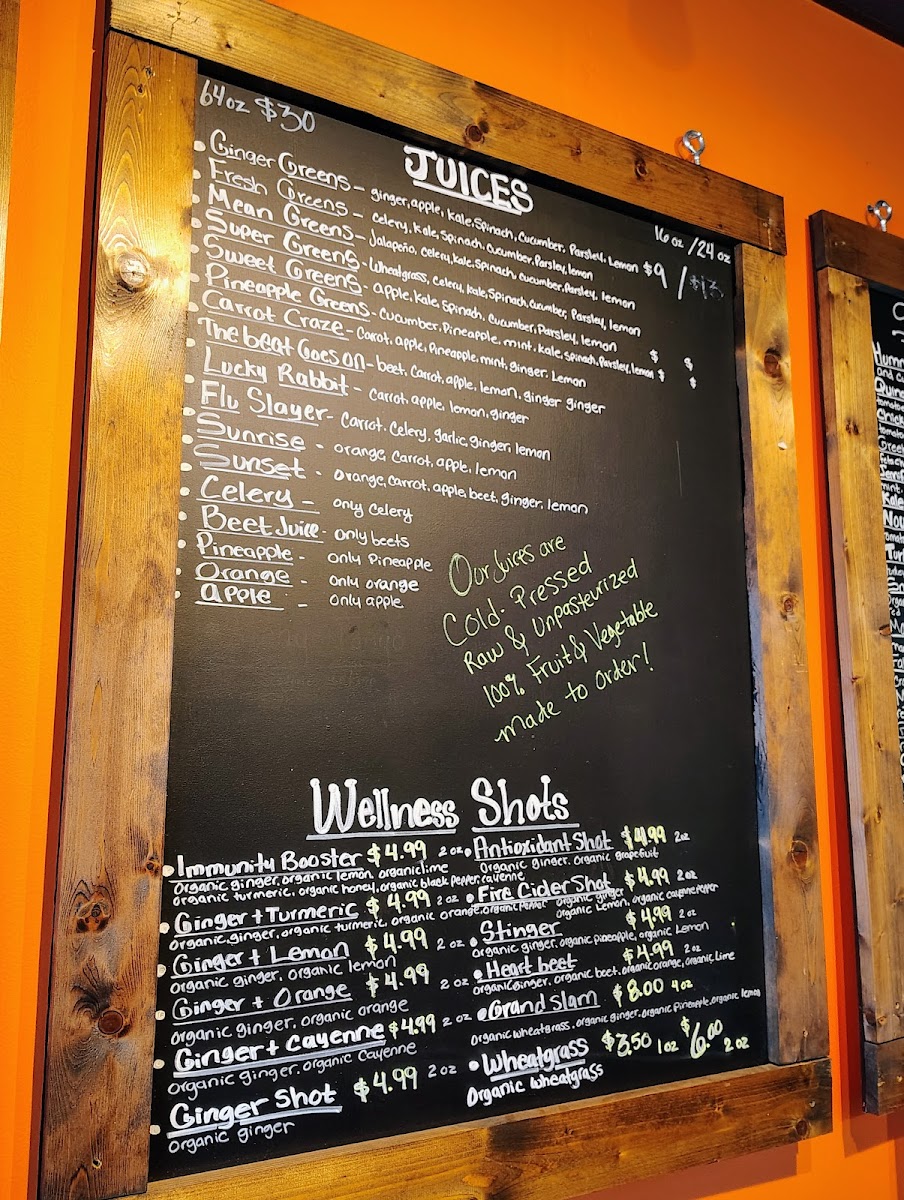 64oz $30
JUICES
16 oz / 24 oz
Ginger Greens - ginger, apple, Kale, Spinach, Cucumber, Parsley, Lemon $9 / $13
Fresh Greens - celery, Kale, Spinach, Cucumber, Parsley, lemon
Mean Greens - Jalapeño, celery, kale, Spinach, cucumber, Parsley, lemon
Super Greens - Wheatgrass, celery, kale, Spinach, cucumber, Parsley, lemon
Sweet Greens - apple, Kale, Spinach, Cucumber, Parsley, lemon
Pineapple Greens - Cucumber, Pineapple, mint, kale, spinach, Parsley, lemon $ $
Carrot Craze - Carrot, apple, Pineapple, mint, ginger, Lemon $ $
The beat Goes on - beet, Carrot, apple, lemon, ginger ginger
Lucky Rabbit - Carrot, apple, lemon, ginger
Flu Slayer - Carrot, Celery, garlic, ginger, lemon
Sunrise - orange, Carrot, apple, lemon
Sunset - orange, carrot, apple, beet, ginger, lemon
Celery - only Celery
Beet Juice - only beets
Pineapple - only Pineapple
Orange - only orange
apple - only apple
Our Juices are
Cold-Pressed
Raw & Unpasteurized
100% Fruit & Vegetable
made to order!
Wellness Shots
Immunity Booster $4.99 2 oz
Organic ginger, organic lemon, organic lime
organic turmeric, organic honey, organic black Pepper, cayenne
Ginger + Turmeric $4.99 2 oz
organic ginger, organic turmeric, organic orange, organic Pepper
Ginger + Lemon $4.99 2 oz
organic ginger, organic lemon
Ginger + Orange $4.99 2 oz
organic ginger, organic orange
Ginger + Cayenne $4.99 2 oz
organic ginger, organic Cayenne
Ginger Shot $4.99 2 oz
organic ginger
Antioxidant Shot $4.99 2oz
Organic ginger, organic grapefruit
Fire Cider Shot $4.99 2 oz
organic ginger
organic Lemon, organic cayenne Pepper
Stinger $4.99 2 oz
organic ginger, organic pineapple, organic Lemon
Heart beet $4.99 2 oz
organic ginger, organic beet, organic orange, organic Lime
Grand Slam $8.00 4 oz
organic wheatgrass, organic ginger, organic Pineapple, organic lemon
Wheatgrass $3.50 1 oz $6.00 2 oz
Organic wheatgrass